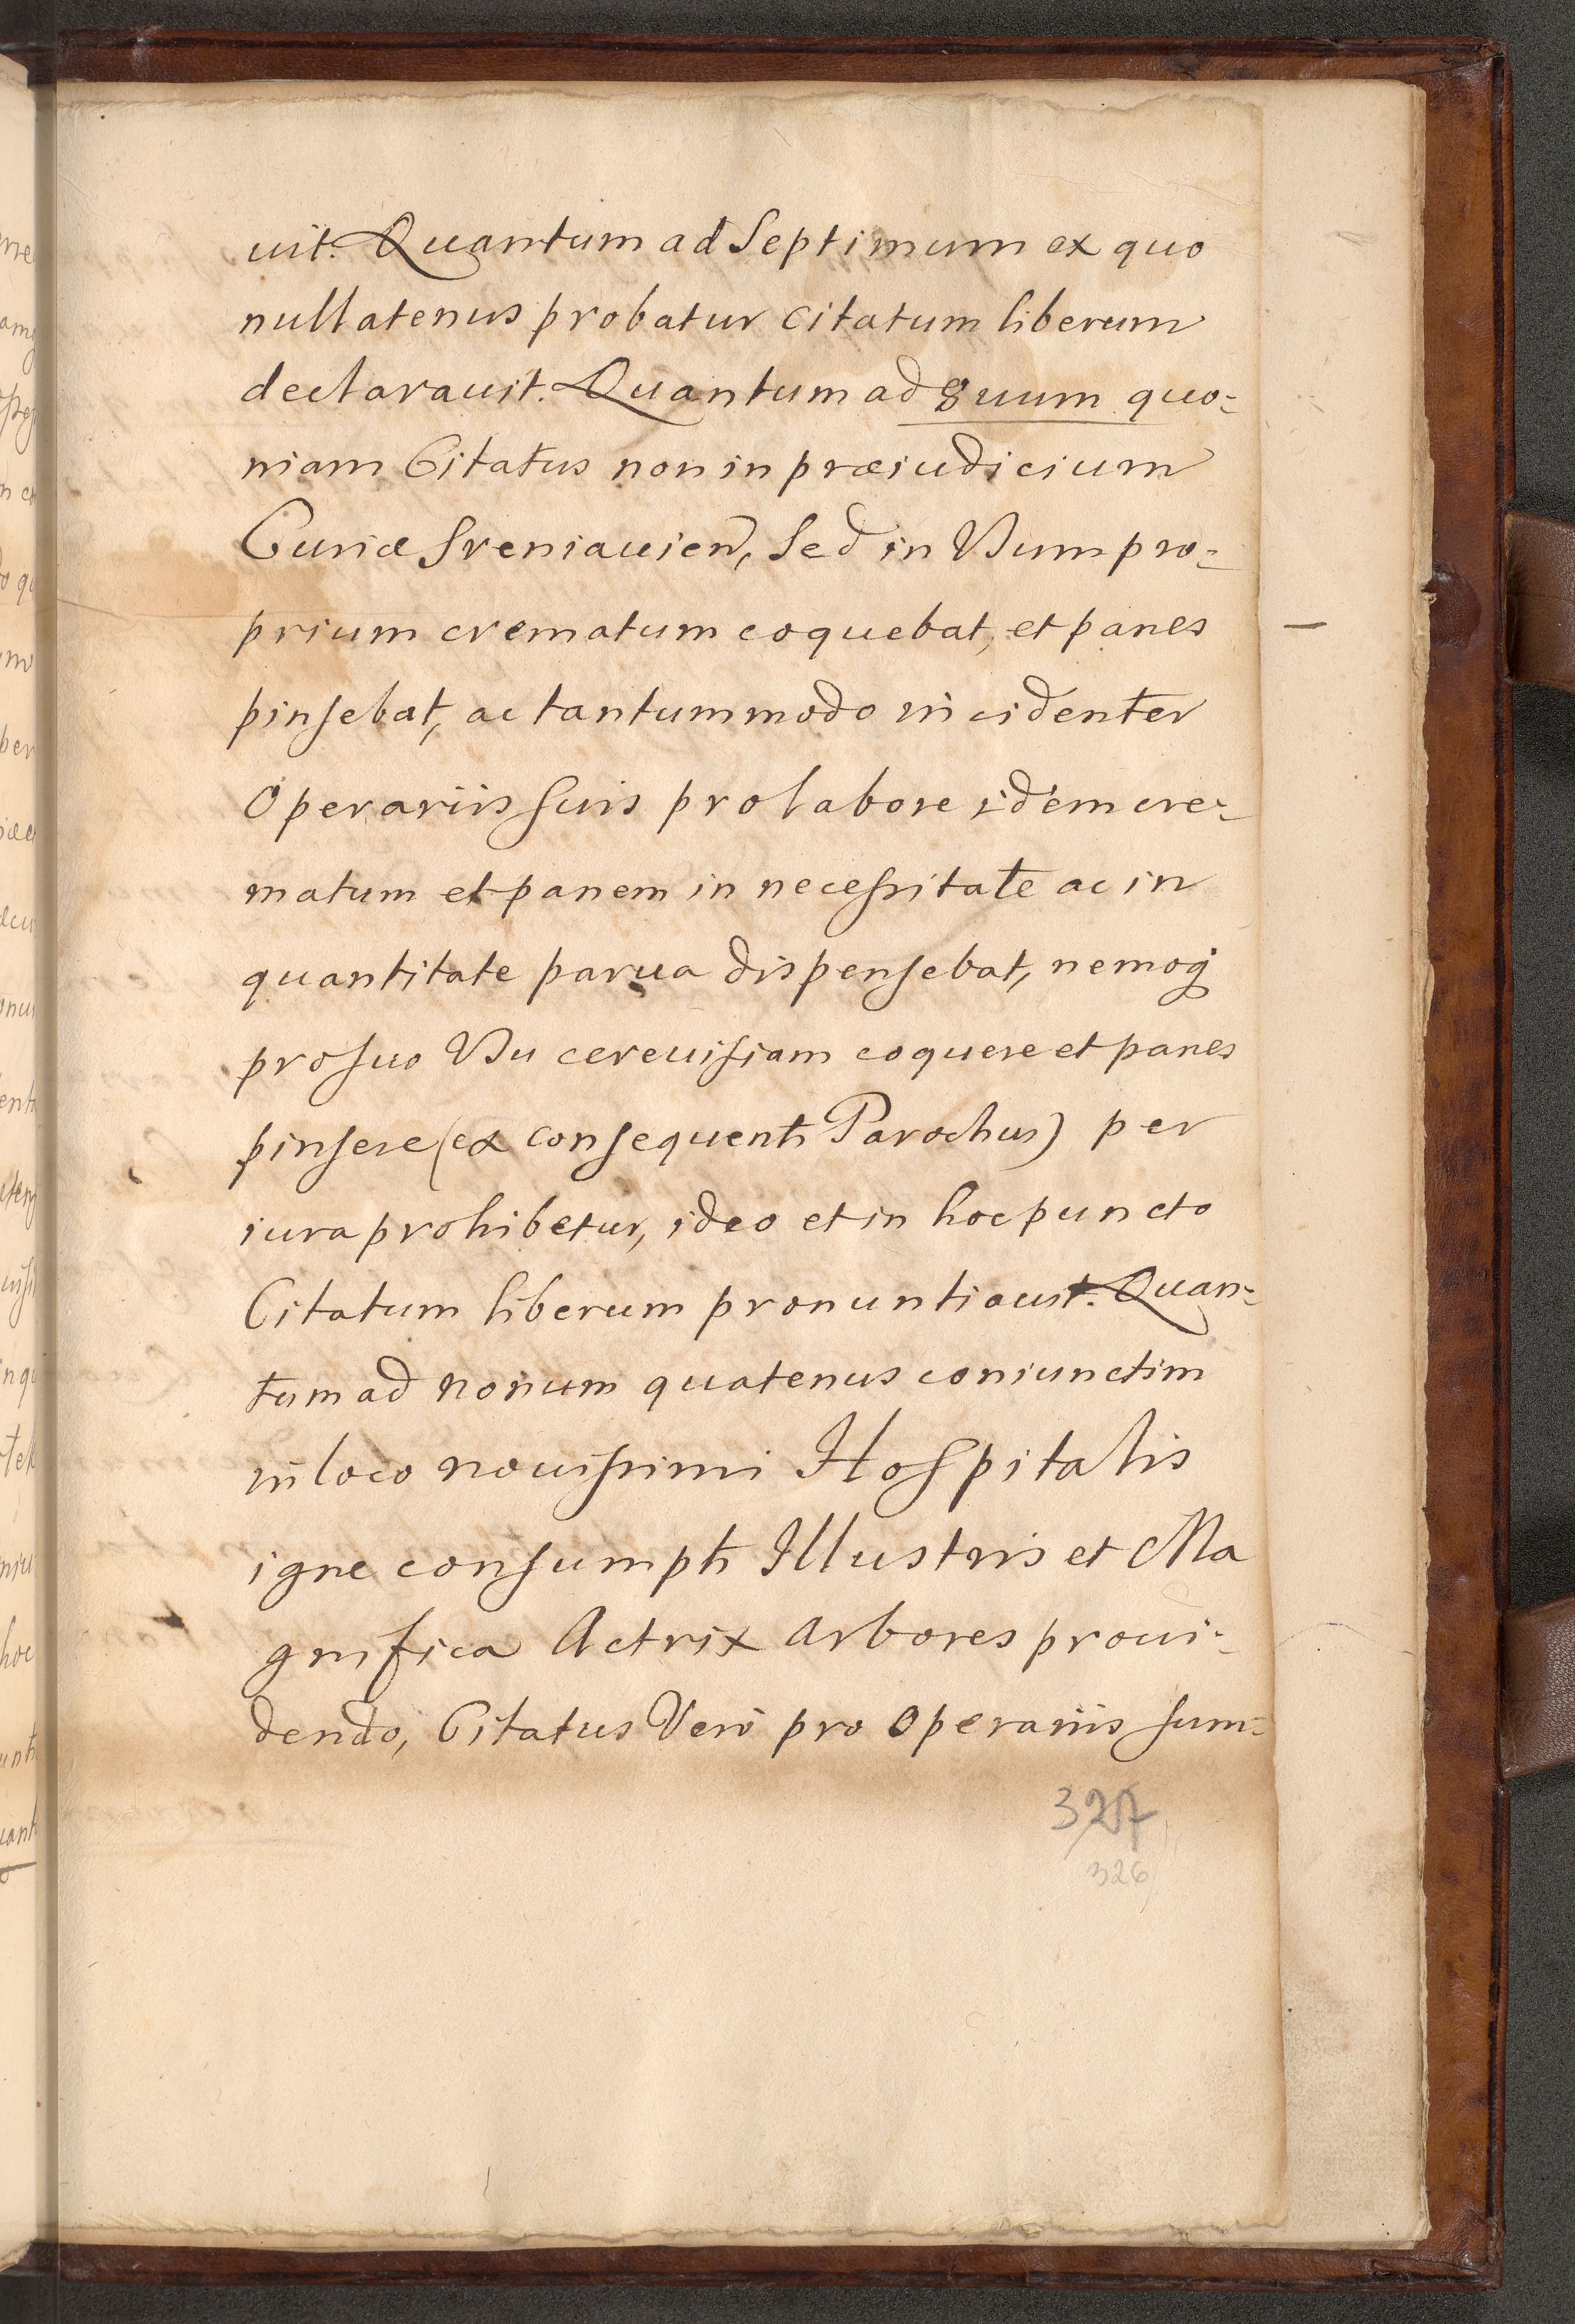 uit. Quantum ad Septimum ex quo
nullatenus probatur Citatum liberum
declarauit. Quantum ad 8uum quo-
niam Citatus non in præiudicium
Curiæ Sreniauien, Sed in Vsum pro-
prium crematum coquebat, et panes
pinsebat, ac tantummodo incidenter
Operariis suis pro labore idem cre-
matum et panem in necessitate ac in
quantitate parua dispensebat, nemoq
pro suo Vsu cereuisiam coquere et panes
pinsere (ex consequenti Parochus) per
iura prohibetur, ideo et in hoc puncto
Citatum liberum pronuntiauit. Quan-
tum ad nonum quatenus coniunctim
in loco nouissimi Hospitalis
igne consumpti Illustris et Ma
gnifica Actrix arbores proui-
dendo, Citatus Verò pro Operariis sum-
327
326